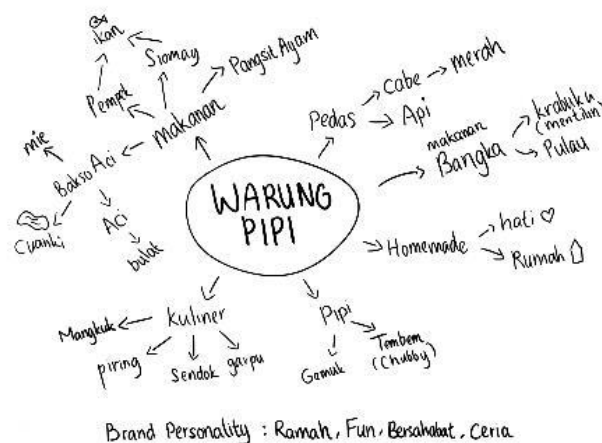 WARUNG
PIPI
Makanan
Pempek
Siomay
ikan
Pangsit Ayam
Bakso Aci
mie
Cuanki
Aci
bulat
Pedas
Cabe
merah
Api
makanan
Bangka
(mentilin)
Pulau
Homemade
hati
Rumah
Pipi
Gemuk
Tembem
(Chubby)
Kuliner
Mangkuk
piring
Sendok
garpu
Brand Personality : Ramah, Fun, Bersahabat, Ceria